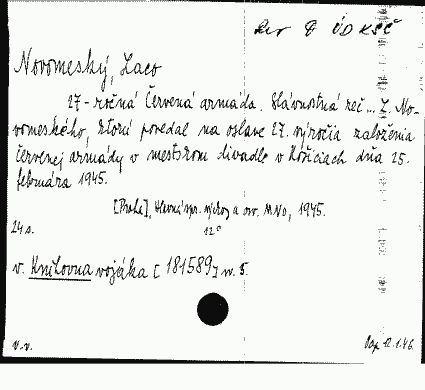 ÚD KSČ
Novomeský, Laco
27-ročná Červená armáda. Slávnostná reč... L. No-
vomeského, ktorú povedal na oslave 27. výročia založenia
Červenej armády v mestskom divadle v Košiciach dňa 25.
februára 1945.
[Praha], Hlavná spr. výchovy a osv. MNO, 1945.
24 s. 12°
v. Knihovna vojáka [181589] sv. 5.
v.v. 12.1.46.